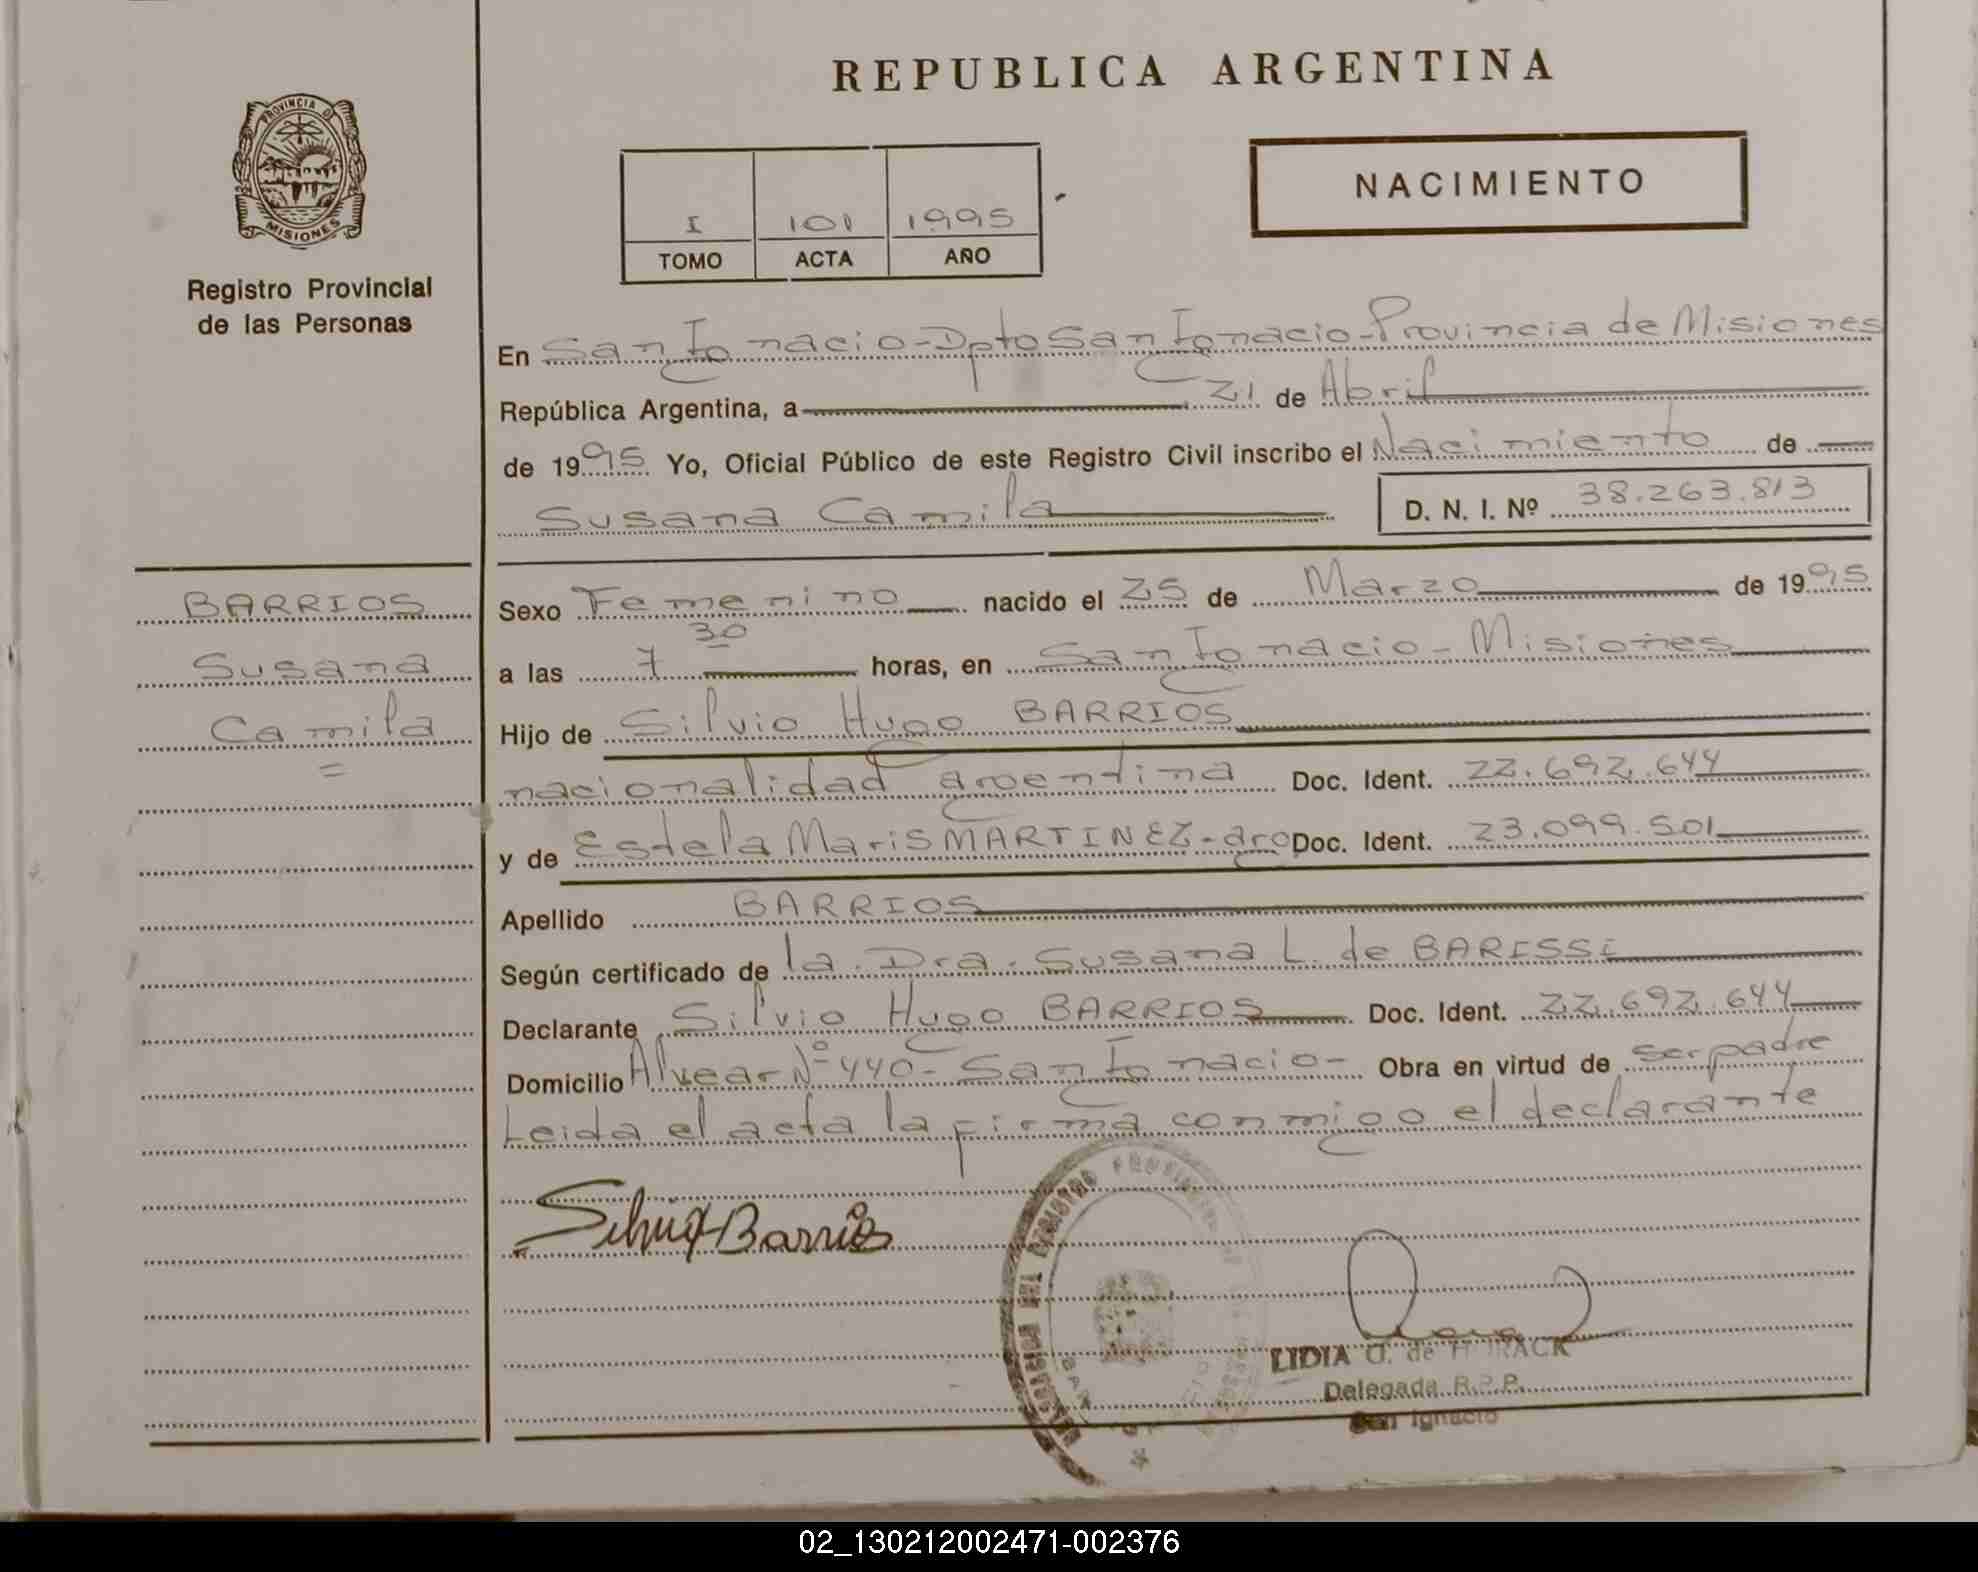 REPUBLICA ARGENTINA
PROVINCIA DE
MISIONES
Registro Provincial
de las Personas
NACIMIENTO
I 101 1995
TOMO ACTA AÑO
En San Ignacio - Dpto San Ignacio - Provincia de Misiones
República Argentina, a 21 de Abril
de 1995 Yo, Oficial Público de este Registro Civil inscribo el Nacimiento de
Susana Camila D. N. I. Nº 38.263.813
BARRIOS
Susana
Camila
Sexo Femenino nacido el 25 de Marzo de 1995
a las 7 30 horas, en San Ignacio - Misiones
Hijo de Silvio Hugo BARRIOS
nacionalidad argentina Doc. Ident. 22.692.644
y de Estela Maris MARTINEZ - arg Doc. Ident. 23.099.501
Apellido BARRIOS
Según certificado de la Dra. Susana L. de BARISSI
Declarante Silvio Hugo BARRIOS Doc. Ident. 22.692.644
Domicilio Alvear Nº 440 - San Ignacio - Obra en virtud de ser padre
Leida el acta la firma conmigo el declarante
Silvio Barrios
LIDIA G. de
Delegada R.P.P.
San Ignacio
02_130212002471-002376